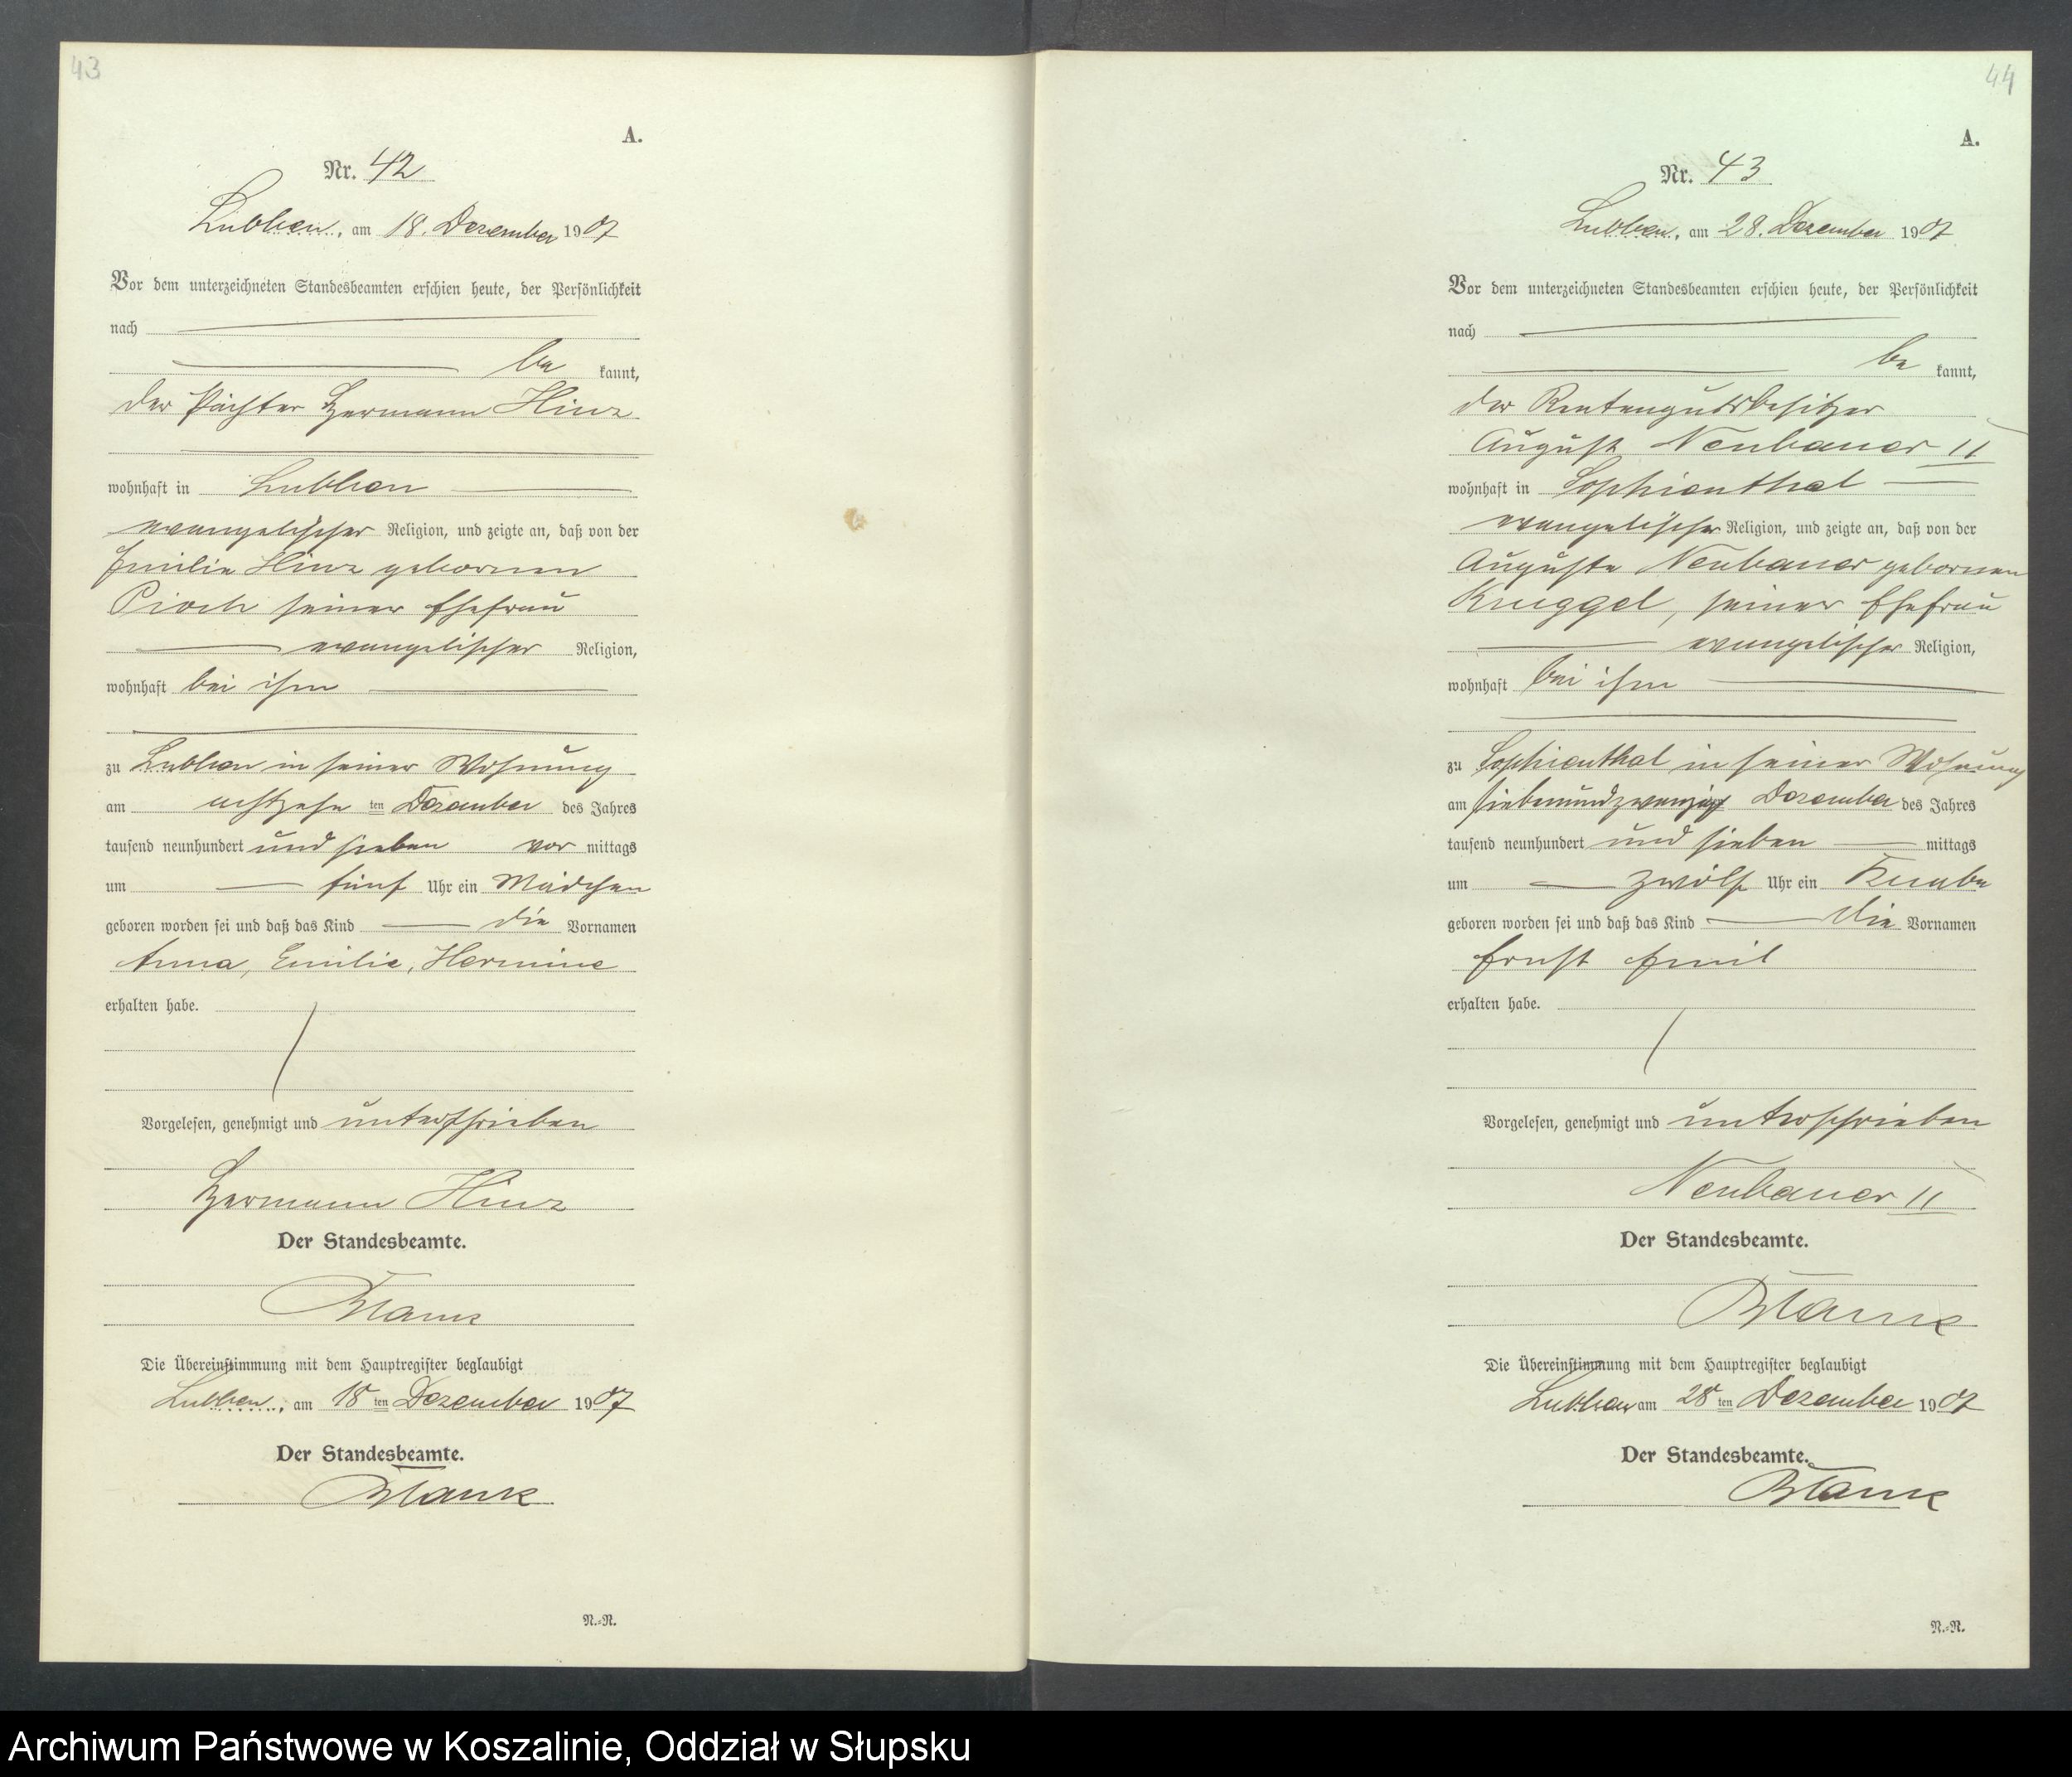 43
A.
Nr. 42
Lubben, am 18. Dezember 1907
Vor dem unterzeichneten Standesbeamten erschien heute, der Persönlichkeit
nach
be kannt,
der Pächter Hermann Hinz
wohnhaft in Lubben
evangelischer Religion, und zeigte an, daß von der
Emilie Hinz gebornen
Pioch seiner Ehefrau
evangelischer Religion,
wohnhaft bei ihm
zu Lubben in seiner Wohnung
am achtzehn ten Dezember des Jahres
tausend neunhundert und sieben vor mittags
um fünf Uhr ein Mädchen
geboren worden sei und daß das Kind die Vornamen
Anna, Emilie, Hermine
erhalten habe.
Vorgelesen, genehmigt und unterschrieben
Hermann Hinz
Der Standesbeamte.
Die Übereinstimmung mit dem Hauptregister beglaubigt
Lubben, am 18 ten Dezember 1907
Der Standesbeamte.
N.=N.
44
A.
Nr. 43
Lubben, am 28. Dezember 1907
Vor dem unterzeichneten Standesbeamten erschien heute, der Persönlichkeit
nach
be kannt,
der Rentengutsbesitzer
August Neubauer II
wohnhaft in Sophienthal
evangelischer Religion, und zeigte an, daß von der
Auguste Neubauer gebornen
Kruggel, seiner Ehefrau
evangelischer Religion,
wohnhaft bei ihm
zu Sophienthal in seiner Wohnung
am siebenundzwanzig Dezember des Jahres
tausend neunhundert und sieben mittags
um zwölf Uhr ein Knabe
geboren worden sei und daß das Kind die Vornamen
Ernst Emil
erhalten habe.
Vorgelesen, genehmigt und unterschrieben
Neubauer II
Der Standesbeamte.
Die Übereinstimmung mit dem Hauptregister beglaubigt
Lubben am 28 ten Dezember 1907
Der Standesbeamte.
N.=N.
Archiwum Państwowe w Koszalinie, Oddział w Słupsku